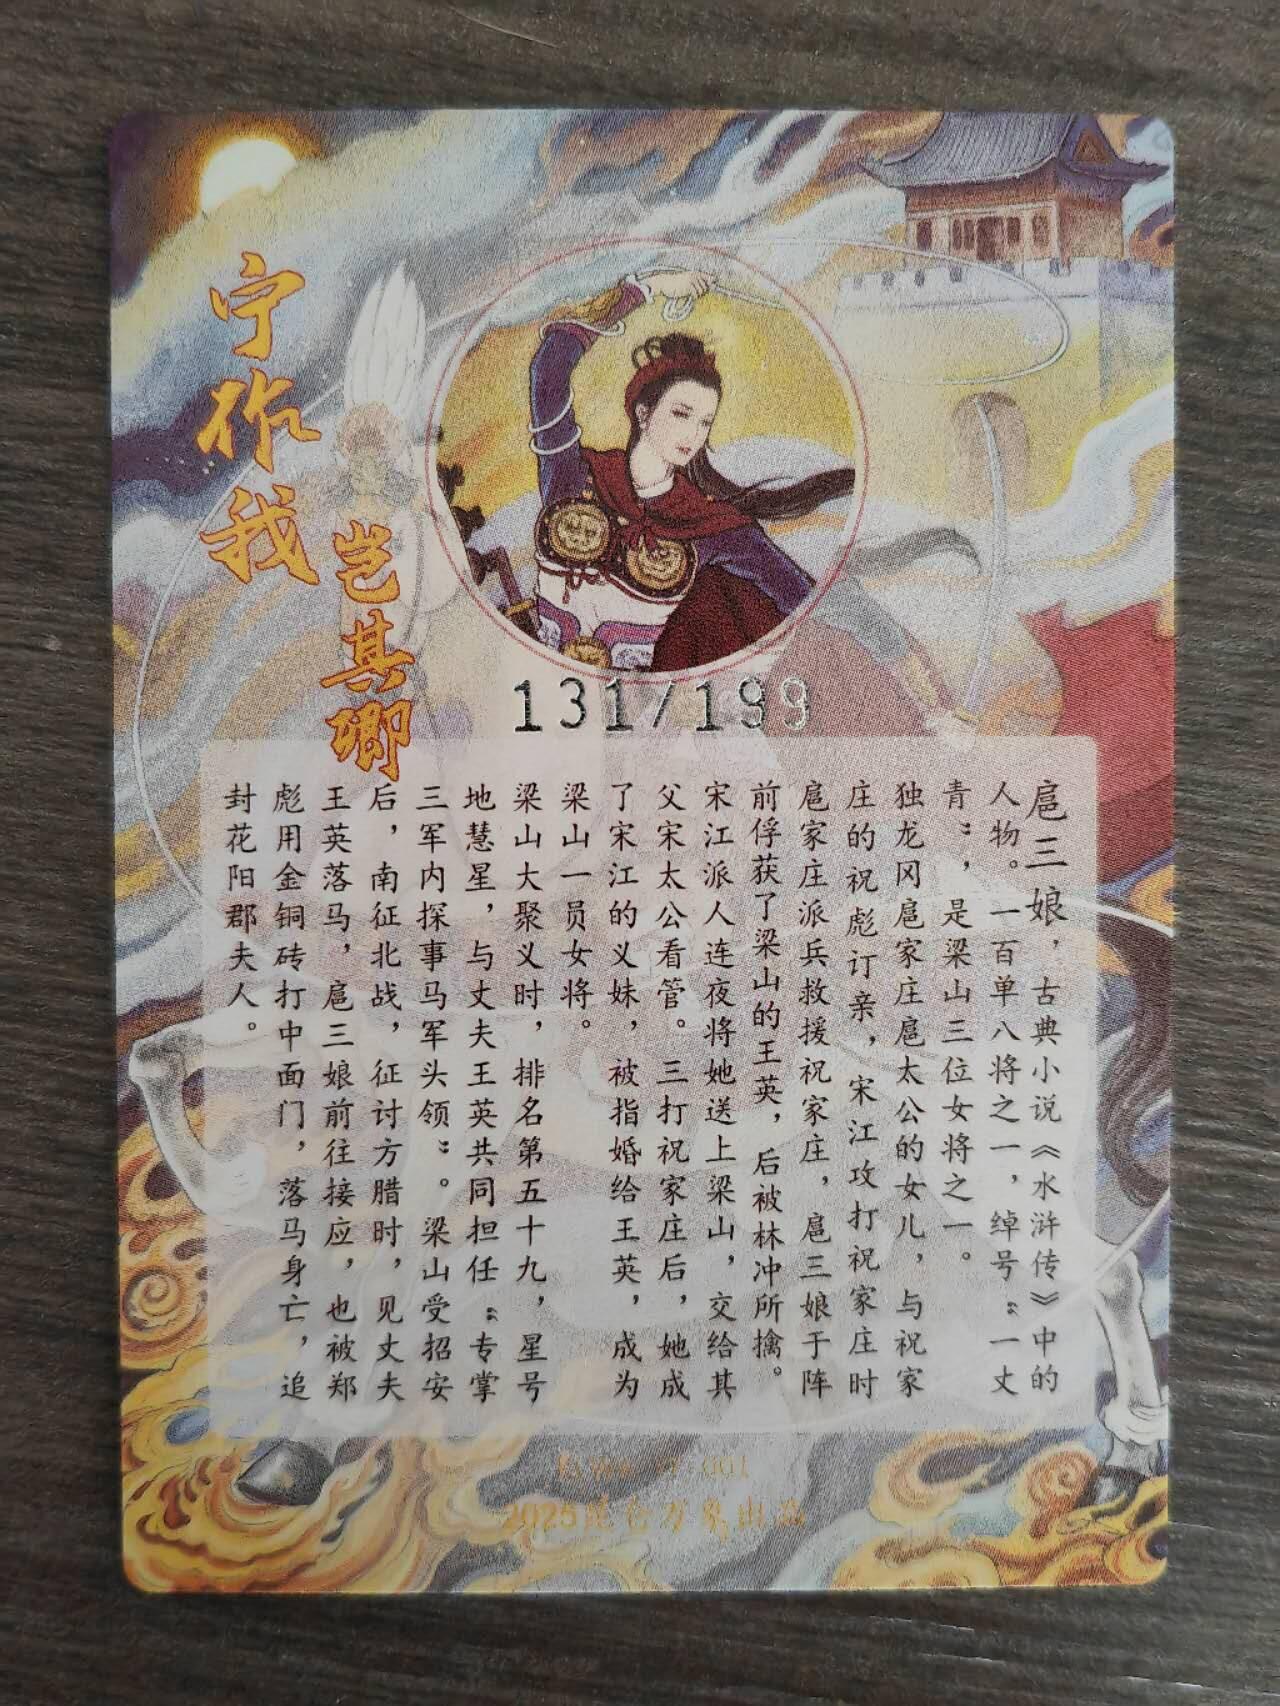 宁作我
岂其卿
131/199
扈三娘,古典小说《水浒传》中的
人物。一百单八将之一,绰号:“一丈
青”,是梁山三位女将之一。
独龙冈扈家庄扈太公的女儿,与祝家
庄的祝彪订亲,宋江攻打祝家庄时
扈家庄派兵救援祝家庄,扈三娘于阵
前俘获了梁山的王英,后被林冲所擒。
宋江派人连夜将她送上梁山,交给其
父宋太公看管。三打祝家庄后,她成
了宋江的义妹,被指婚给王英,成为
梁山一员女将。
梁山大聚义时,排名第五十九,星号
地慧星,与丈夫王英共同担任“专掌
三军内探事马军头领”。梁山受招安
后,南征北战,征讨方腊时,见丈夫
王英落马,扈三娘前往接应,也被郑
彪用金铜砖打中面门,落马身亡,追
封花阳郡夫人。
001
2025昆仑万象出品